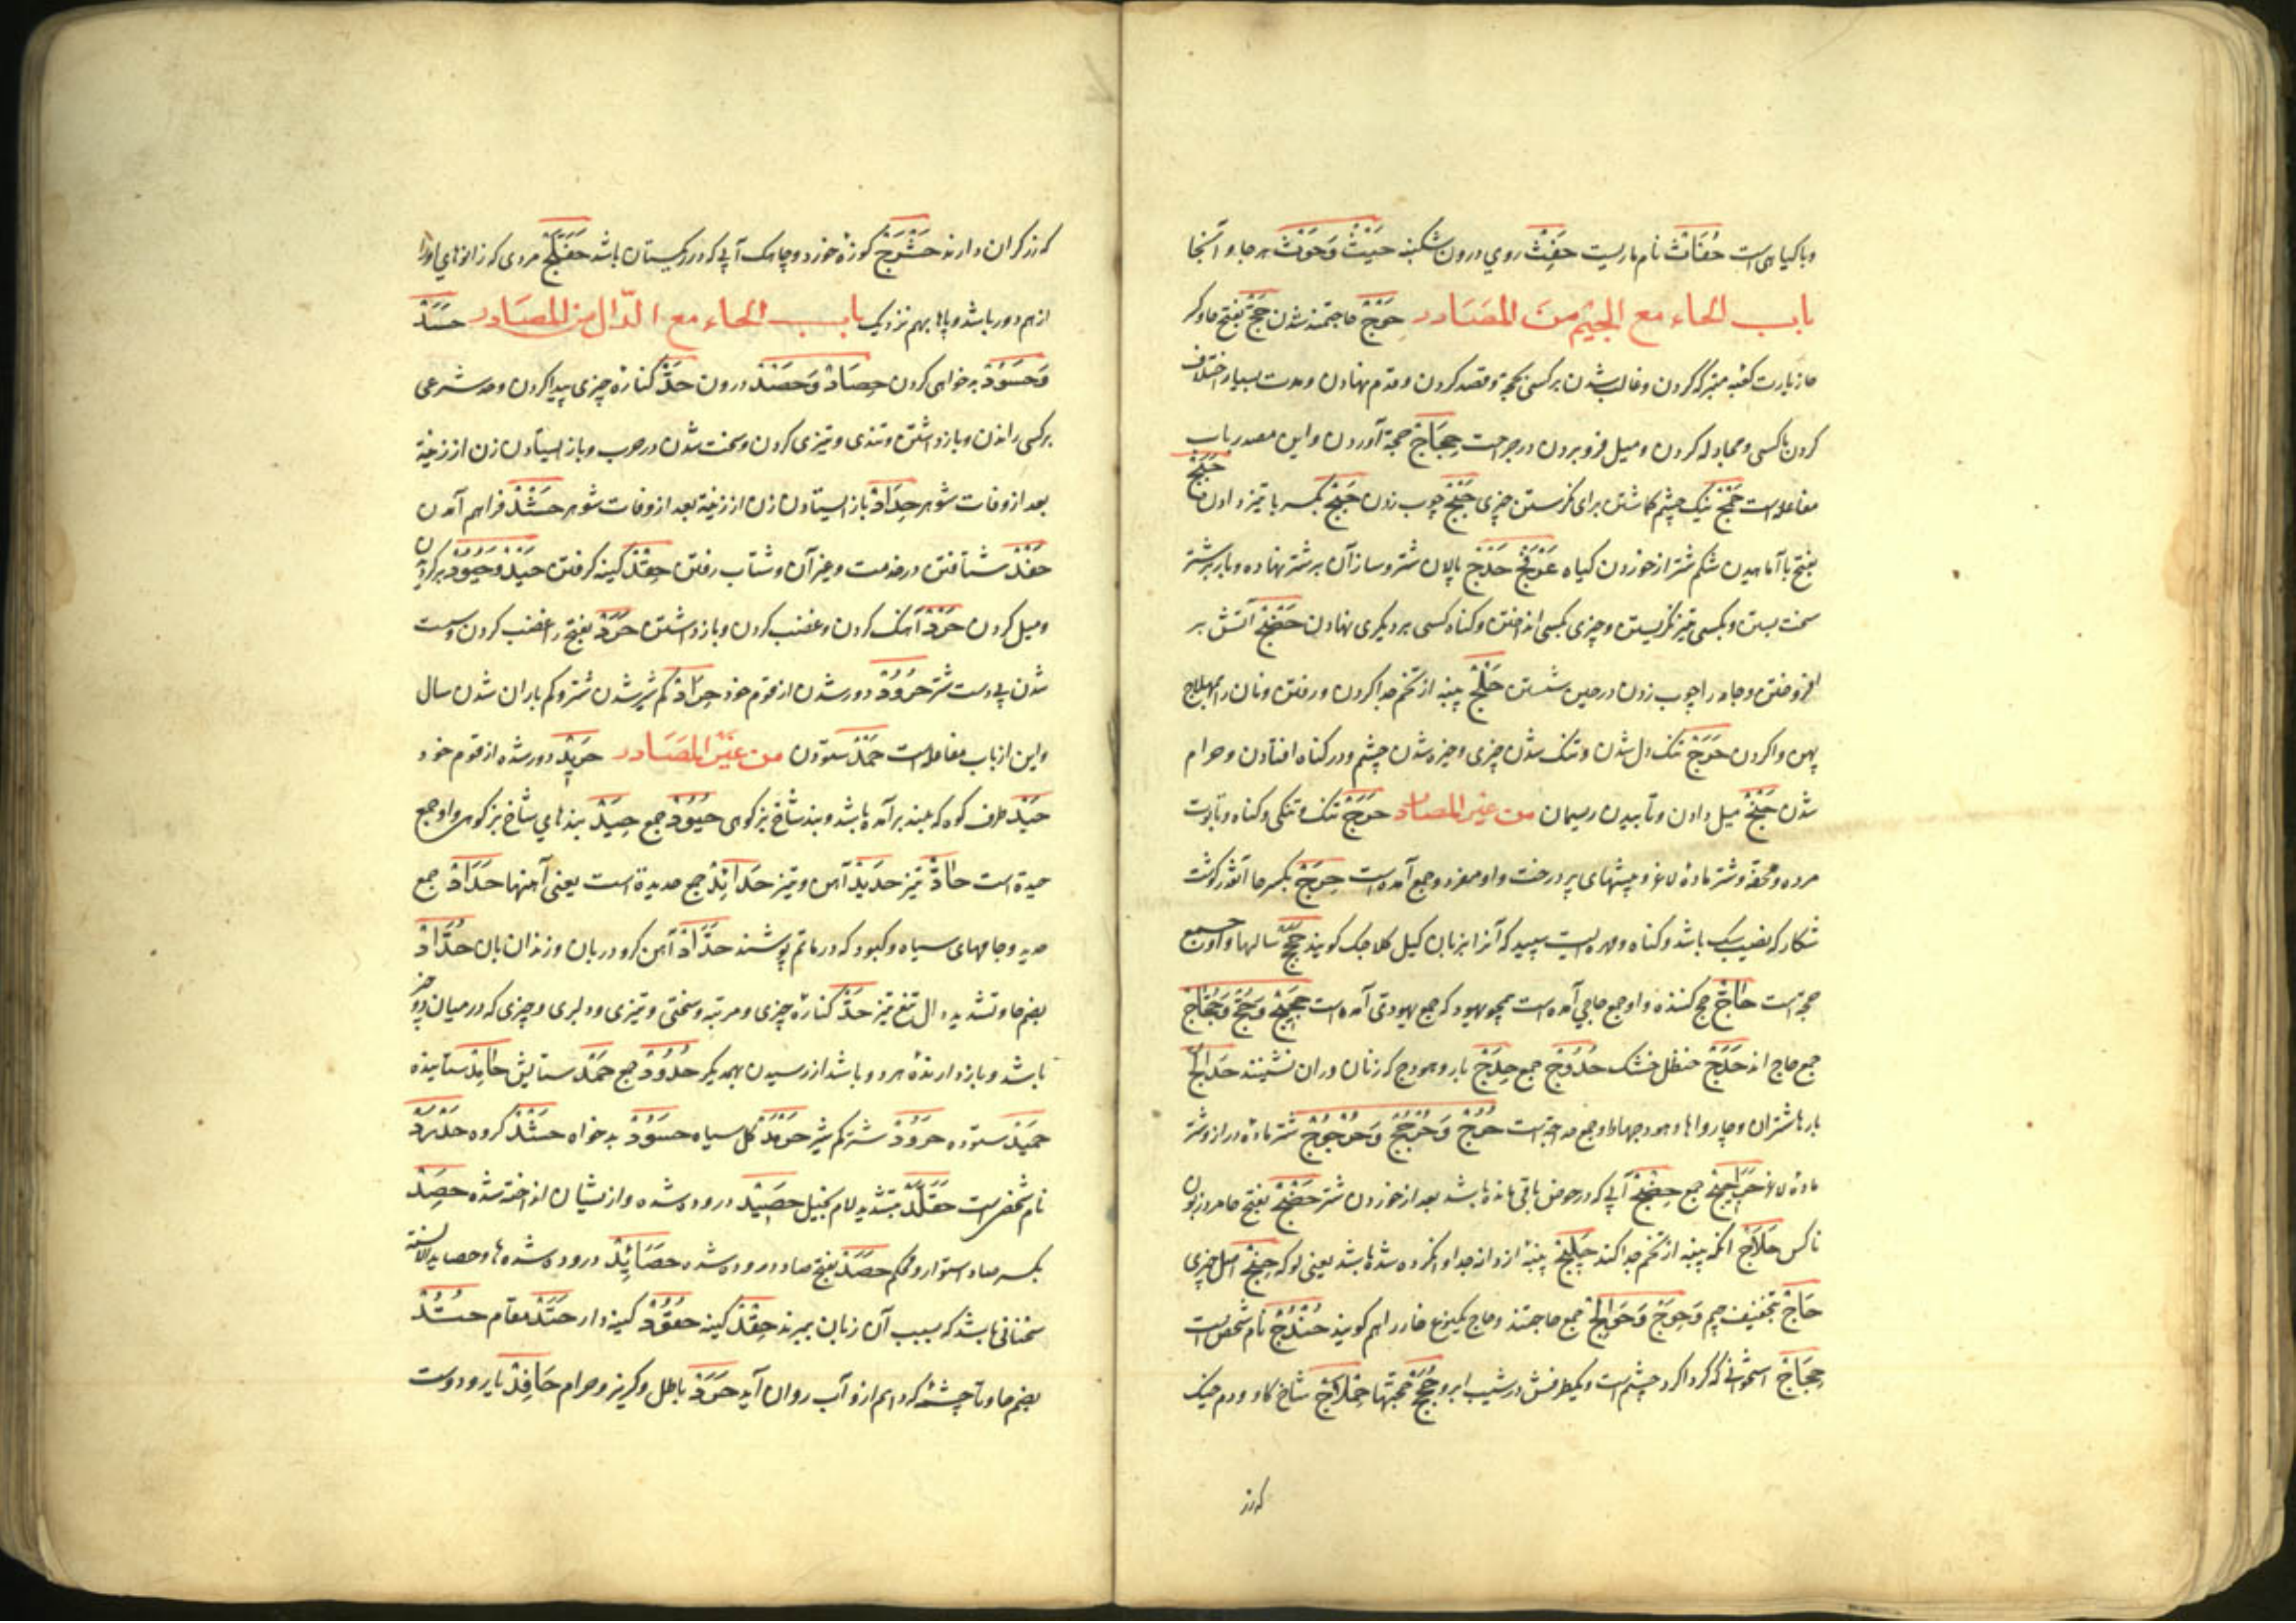 وبا کیاهی است حُفَّاثْ نام ماریست حَفِثْ روی درون شکنبه حَیْثُ وَحَوْثْ هر جا و آنجا
باب الحاء مع الجیم من المصَادر حَوْجْ حاجتمند شدن حَجّ بفتح حا وکر
حا زیارت کعبه مبرکه کردن و غالب شدن بر کسی بحجة و قصد کردن و قدم نهادن و مدت بسیار اختلاف
کردن با کسی و مجادله کردن و میل فرو بردن در جراحت حِجَاجْ حجة آوردن و این مصدر باب
مفاعله است نیک چشم کاشتن برای نکرستن چیزی حَبْجْ چوب زدن حَبْجْ بکسر با تیز دادن
بفتح با آماهیدن شکم شتر از خوردن کیاه عَرْفَجْ حَدْجْ پالان شتر و ساز آن بر شتر نهاده و بار بر شتر
سخت بستن و بکسی تیز نکریستن و چیزی بکسی انداختن و کناه کسی بر دیکری نهادن حَضْجْ آتش بر
افروختن و جامه را چوب زدن در حین شستن حَلْجْ پنبه از تخم جدا کردن و رفتن و نان را
پهن وا کردن حَرَجْ تنک دل شدن و تنک شدن چیزی و خیره شدن چشم و در کناه افتادن و حرام
شدن حَنْجْ میل دادن و تابیدن ریسمان من غیر المصادر حَرَجْ تنک و تنکی و کناه و تابوت
مرده و محفه و شتر ماده لاغر و بیشهای پر درخت و او مفرد و جمع آمده است حِرْجْ بکسر حا آنقدر کوشت
شکار که نصیب سک باشد و کناه و مهره ایست سپید که آنرا بزبان کیل کلاجک کویند حِجَجْ سالها و او جمع
حجة است حَاجّ حج کننده و او جمع حاجی آمده است همچو یهود که جمع یهودی آمده است حَجِیْجْ وَحُجّ وَحُجَّاجْ
جمع حاج اند حَدَجْ حنظل خشک حُدُوْجْ جمع حِدْجْ بار و هودج که زنان در ان نشینند حَدَایِجْ
بارها شتران و چارواها و هودجها و او جمع حداجة است حُرْجْ وَحُرْجُجْ وَحُرْجُوْجْ شتر ماده دراز و شتر
ماده لاغر حَرَاجِیْجْ جمع حِضْجْ آبی که در حوض باقی مانده باشد بعد از خوردن شتر حَضْجْ بفتح حا مرد زبون
ناکس حَلَّاجْ انکه پنبه از تخم جدا کند حَلِیْجْ پنبه از دانه جدا و اکرده شده باشد یعنی لوکه حِنْجْ اصل چیزی
حَاجْ بتخفیف جیم وَحِوَجْ وَحَوَایِجْ جمع حاجتمند و حاج یکنوع خار را هم کویند حُنْدُجْ نام شخصی است
حِجَاجْ استخوانی که کرداکرد چشم است و یکطرفش در شیب ابرو حُجَجْ حجتها حِمْلَاجْ شاخ کاو و دم خیک
که زر
که زرکران دارند حَشْرَجْ کوزه خورد و چاهک آبی که در ریکستان باشد حَفَلَّجْ مردی که زانوهای او را
از هم دور باشد و پاها بهم نزدیک باب الحاء مع الدّال من المصَادر حَسَدْ
وَحَسُوْدْ بدخواهی کردن حِصَادْ وَحَصْدْ درون حَدّ کناره چیزی پیدا کردن و حد شرعی
بر کسی راندن و باز داشتن و تندی و تیزی کردن و سخت شدن در حرب و باز ایستادن زن از زینة
بعد از وفات شوهر حِدَادْ باز ایستادن زن از زینة بعد از وفات شوهر حَشْدْ فراهم آمدن
حَفْدْ شتافتن در خدمت و غیر آن و شتاب رفتن حِقْدْ کینه کرفتن حَیْدْ وَحُیُوْدْ برکردیدن
و میل کردن حَرْدْ آهنک کردن و غضب کردن و باز داشتن حَرَدْ بفتح را غضب کردن و سست
شدن پی دست شتر حُرُوْدْ دور شدن از قوم خود حِرَادْ کم شیر شدن شتر و کم باران شدن سال
و این از باب مفاعله است حَمْدْ ستودن من غیر المصَادر حَرِیْدْ دور شده از قوم خود
حَیْدْ طرف کوه که بلند برآمده باشد و بند شاخ بز کوهی حُیُوْدْ جمع حِیَدْ بندهای شاخ بز کوهی و او جمع
حیدة است حَادّ تیز حَدِیْدْ آهن و تیز حَدَایِدْ جمع حدیدة است یعنی آهنها حِدَادْ جمع
حدید و جامهای سیاه و کبود که در ماتم پوشند حَدَّادْ آهن کر و دربان و زندان بان حُدَّادْ
بضم حا و تشدید دال تیغ تیز حَدّ کناره چیزی و مرتبه و سختی و تیزی و دلیری و چیزی که در میان دو چیز
باشد و باز دارنده هر دو باشد از رسیدن بهمدیکر حُدُوْدْ جمع حَمْدْ ستایش حَامِدْ ستاینده
حَمِیْدْ ستوده حَرُوْدْ شتر کم شیر حَرْمَدْ کل سیاه حَسُوْدْ بدخواه حَشْدْ کروه حَدْرَدْ
نام شخصی است حَقَلَّدْ بتشدید لام بخیل حَصِیْدْ دروده شده و از نشان انداخته شده حَصِدْ
بکسر صاد استوار و محکم حَصَدْ بفتح صاد دروده شده حَصَائِدْ دروده شده ها و حصاید الالسنة
سخنانی باشد که بسبب آن زبان ببرند حِقْدْ کینه حَقُوْدْ کینه دار حَتَدْ مقام حُتُدْ
بضم حا و تا چشمه که دایم ازو آب روان آید حَرَدْ باطل و کریز و حرام حَافِدْ یار و دوست